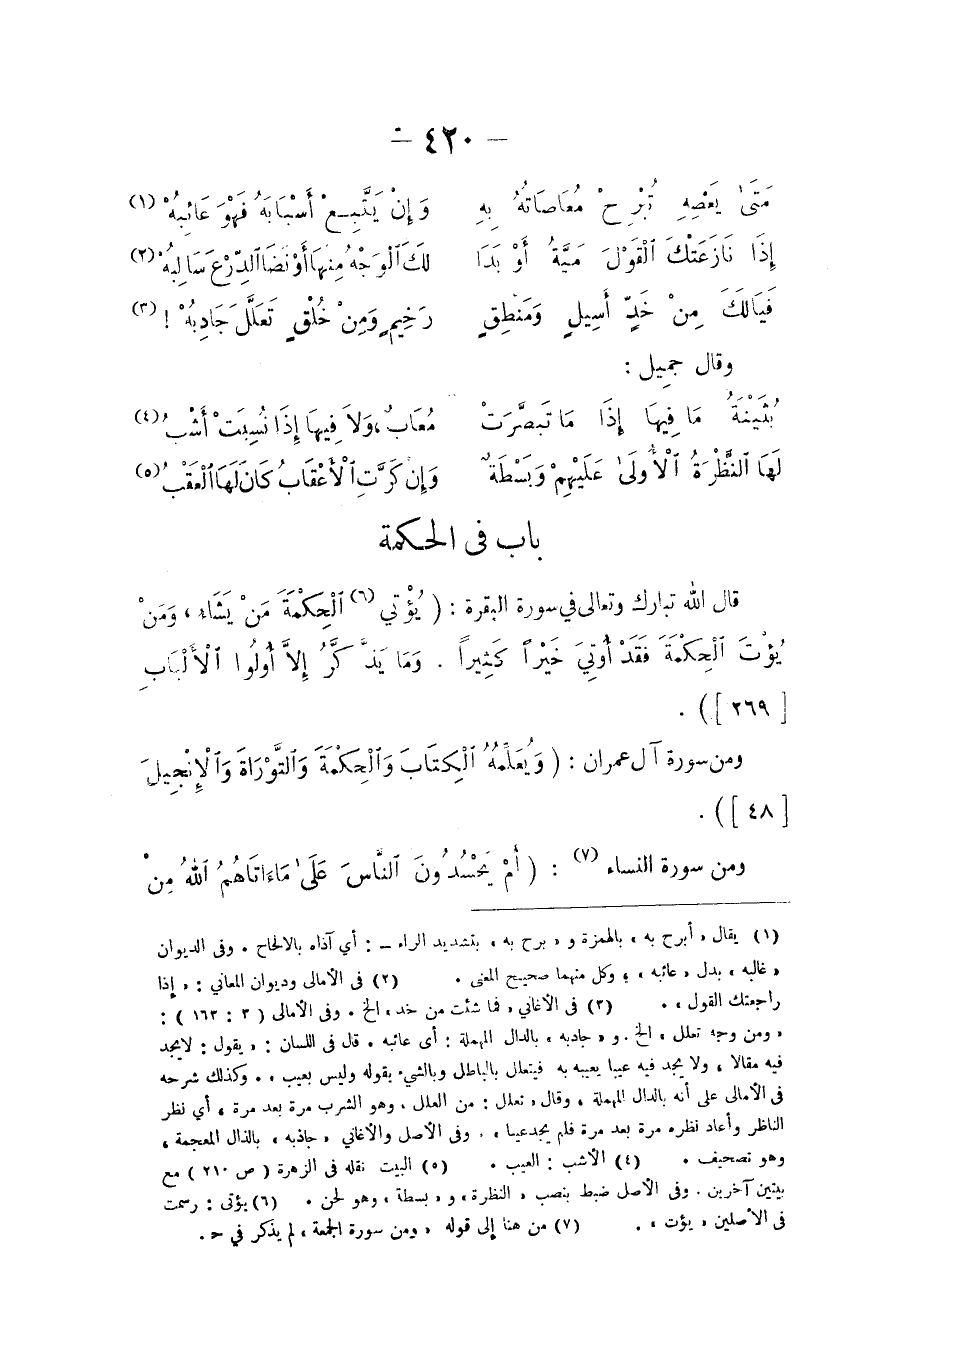 – ٤٢٠ –
مَتَىٰ يَعْصِهِ تُبْرِحْ مُعَاصَاتُهُ بِهِ وَإِنْ يَتَّبِعْ أَسْبَابَهُ فَهْوَ عَائِبُهْ (١)
إِذَا نَازَعَتْكَ ٱلْقَوْلَ مَيَّةُ أَوْ بَدَا لَكَ ٱلْوَجْهُ مِنْهَا أَوْ نَضَا ٱلدِّرْعَ سَالِبُهْ (٢)
فَيَالَكَ مِنْ خَدٍّ أَسِيلٍ وَمَنْطِقٍ رَخِيمٍ وَمِنْ خُلْقٍ تَعَلَّلَ جَادِبُهْ ! (٣)
وقال جميل :
بُثَيْنَةُ مَا فِيهَا إِذَا مَا تُبُصِّرَتْ مُعَابٌ ، وَلاَ فِيهَا إِذَا نُسِبَتْ أَشْبُ (٤)
لَهَا ٱلنَّظْرَةُ ٱلْأُولَىٰ عَلَيْهِمْ وَبَسْطَةٌ وَإِن كَرَّتِ ٱلْأَعْقَابُ كَانَ لَهَا ٱلْعَقْبُ (٥)
باب فى الحكمة
قال الله تبارك وتعالى في سورة البقرة : ( يُؤْتِي (٦) ٱلْحِكْمَةَ مَنْ يَشَاءُ ، وَمَنْ
يُؤْتَ ٱلْحِكْمَةَ فَقَدْ أُوتِيَ خَيْراً كَثِيراً . وَمَا يَذَّكَّرُ إِلاَّ أُولُوا ٱلْأَلْبَابِ
[ ٢٦٩ ] ) .
ومن سورة آل عمران : ( وَيُعَلِّمُهُ ٱلْكِتَابَ وَٱلْحِكْمَةَ وَٱلتَّوْرَاةَ وَٱلْإِنْجِيلَ
[ ٤٨ ] ) .
ومن سورة النساء (٧) : ( أَمْ يَحْسُدُونَ ٱلنَّاسَ عَلَىٰ مَاءَاتَاهُمُ ٱللهُ مِنْ
(١) يقال « أبرح به » بالهمزة و « برح به » بتشديد الراء ــ : أي آذاه بالالحاح . وفى الديوان
« غالبه » بدل « عائبه » ، وكل منهما صحيح المعنى . (٢) فى الأمالى وديوان المعاني : « إذا
راجعتك القول » . (٣) فى الأغاني « فما شئت من خد » الخ . وفى الأمالى ( ٣ : ١٦٣ ) :
« ومن وجه تعلل » الخ . و « جادبه » بالدال المهملة : أى عائبه . قال فى اللسان : « يقول : لا يجد
فيه مقالا ، ولا يجد فيه عيبا يعيبه به فيتعلل بالباطل وبالشيء يقوله وليس بعيب » . وكذلك شرحه
فى الأمالى على أنه بالدال المهملة ، وقال « تعلل : من العلل ، وهو الشرب مرة بعد مرة ، أي نظر
الناظر وأعاد نظره مرة بعد مرة فلم يجد عيبا » . وفى الأصل والأغاني « جاذبه » بالذال المعجمة ،
وهو تصحيف . (٤) الأشب : العيب . (٥) البيت نقله فى الزهرة ( ص ٢١٠ ) مع
بيتين آخرين . وفى الأصل ضبط بنصب « النظرة » و « بسطة » وهو لحن . (٦) يؤتى : رسمت
فى الأصلين « يؤت » . (٧) من هنا إلى قوله « ومن سورة الجمعة » لم يذكر في ح .